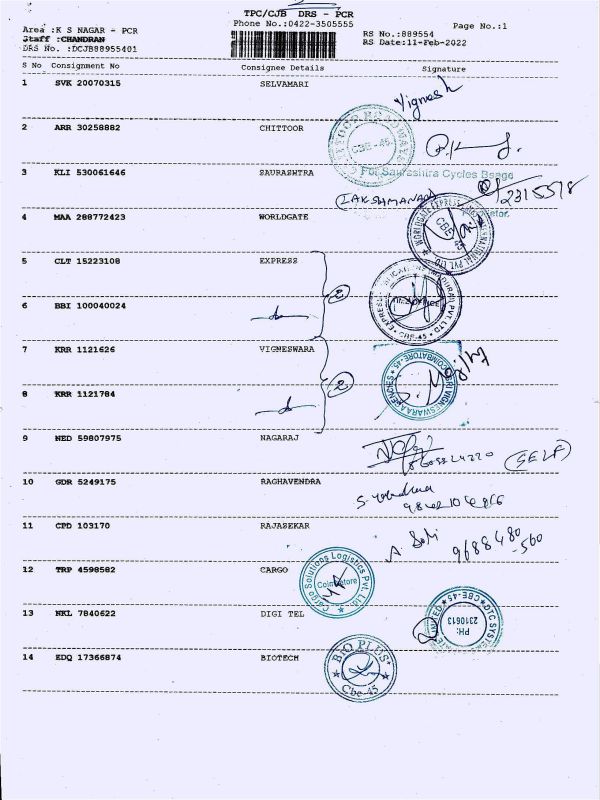 TPC/CJB DRS - PCR
Area :K S NAGAR - PCR
Phone No.:0422-3505555
Page No.:1
Staff :CHANDRAN
RS No.:889554
DRS No. :DCJB88955401
RS Date:11-Feb-2022
S No Consignment No Consignee Details Signature
1 SVK 20070315 SELVAMARI Vignesh
2 ARR 30258882 CHITTOOR
CBE-45.
3 KLI 530061646 SAURASHTRA For Saurashtra Cycles
(LAKSHMANAN) 2315578
4 MAA 288772423 WORLDGATE
WORLDGATE EXPRESS PVT. LTD
CBE-45
5 CLT 15223108 EXPRESS
2
CBE-45
6 BBI 100040024
7 KRR 1121626 VIGNESWARA
2
SRI VIGNESWARA AGENCIES COIMBATORE-45
8 KRR 1121784
9 NED 59807975 NAGARAJ (SELF)
10 GDR 5249175 RAGHAVENDRA
11 CPD 103170 RAJASEKAR
9688480
-560
12 TRP 4598582 CARGO
Cargo Solutions Logistics Pvt. Ltd.
Coimbatore
13 NKL 7840622 DIGI TEL
DTC SYSTEM
CBE-45
PH:
2310613
14 EDQ 17366874 BIOTECH
BIO PLUS
Cbe-45